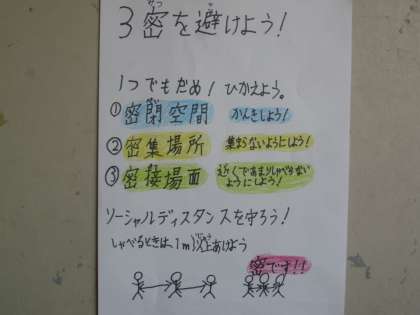 3密を避けよう!
1つでもだめ! ひかえよう。
①密閉空間 かんきしよう!
②密集場所 集まらないようにしよう!
③密接場面 近くであまりしゃべらないようにしよう!
ソーシャルディスタンスを守ろう!
しゃべるときは、1m以上あけよう
密です!!